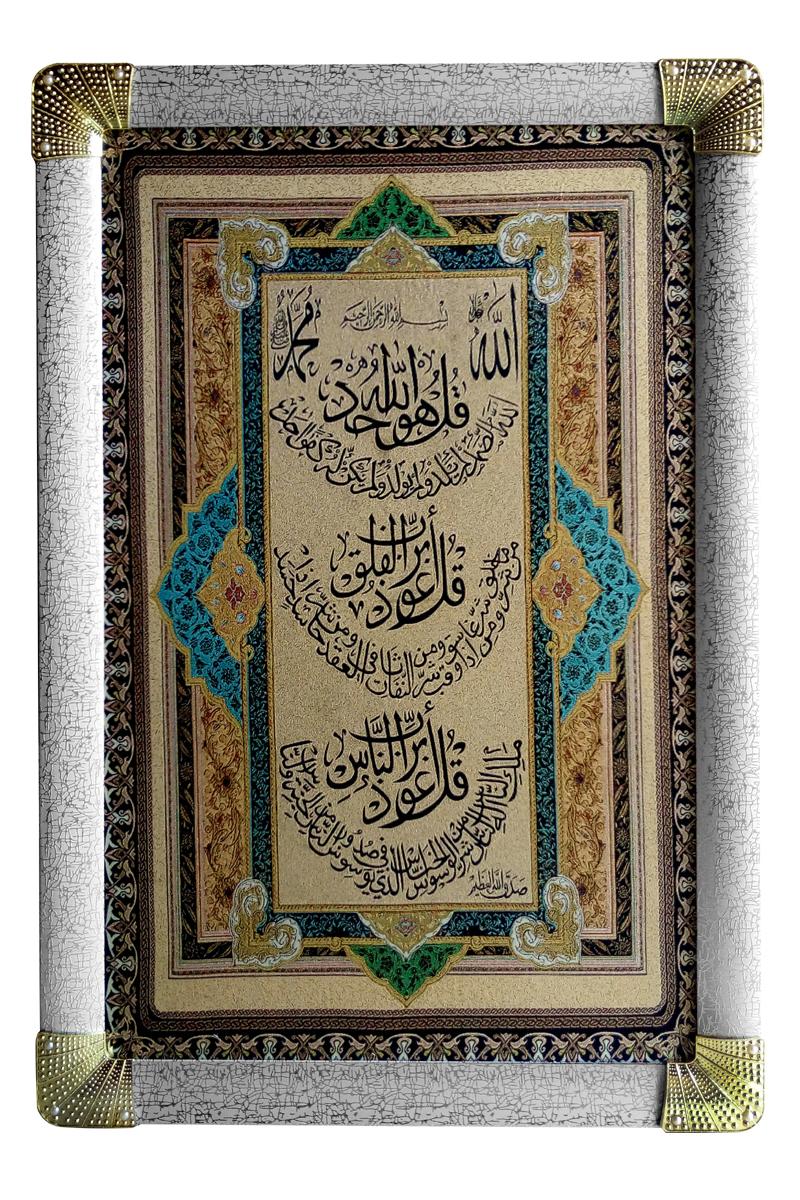 الله جل جلاله
بسم الله الرحمن الرحيم
محمد
قل هو الله أحد
الله الصمد لم يلد ولم يولد ولم يكن له كفوا أحد
قل أعوذ برب الفلق
من شر ما خلق ومن شر غاسق إذا وقب ومن شر النفاثات في العقد ومن شر حاسد إذا حسد
قل أعوذ برب الناس
ملك الناس إله الناس من شر الوسواس الخناس الذي يوسوس في صدور الناس من الجنة والناس
صدق الله العظيم